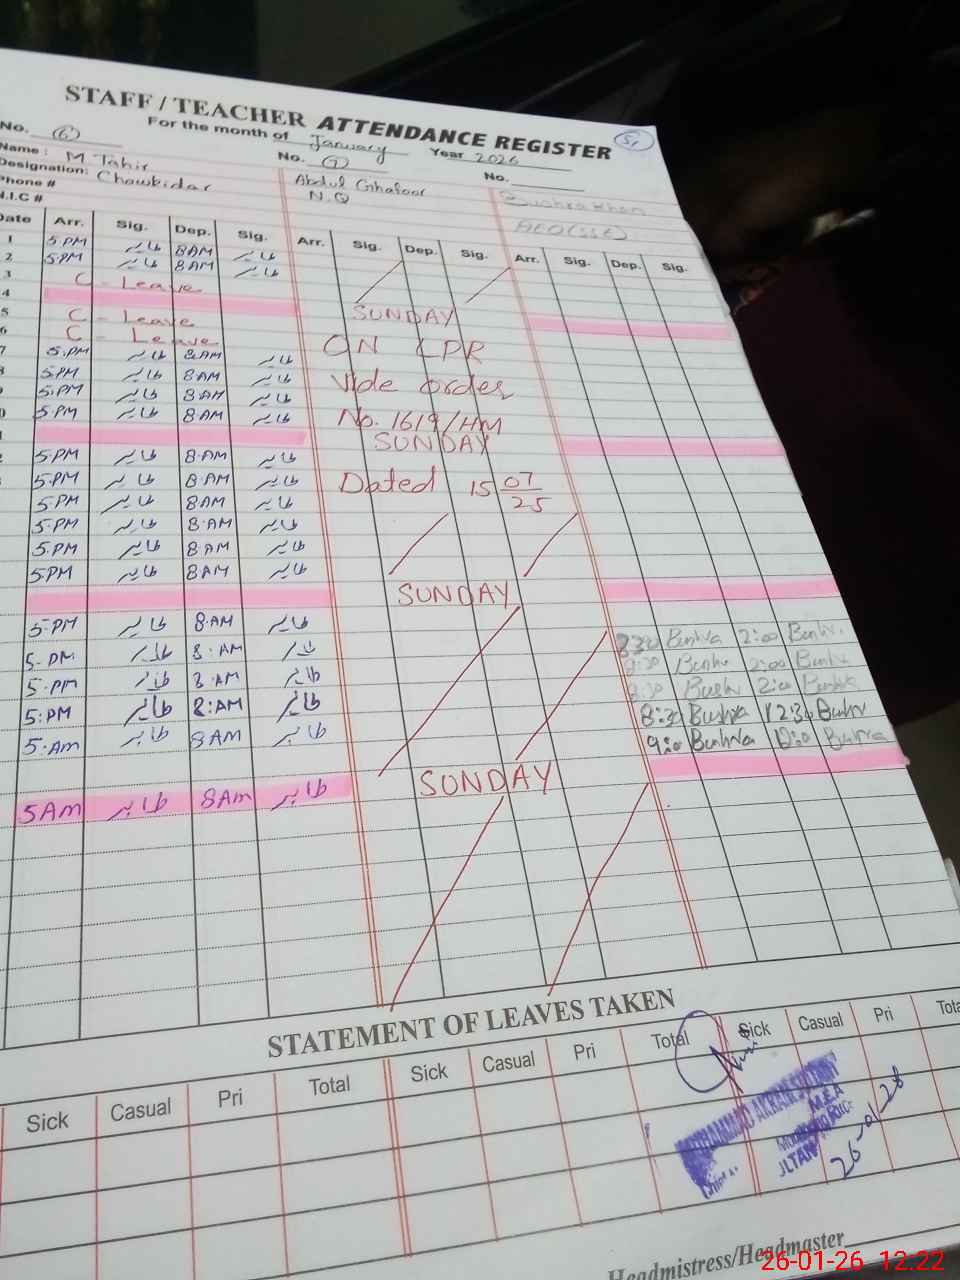 STAFF / TEACHER ATTENDANCE REGISTER
51
For the month of January Year 2026
No. (6) No. (7) No.
Name : M Tahir Abdul Ghafoor Bushra Khan
Designation: Chowkidar N.Q AEO(SSE)
Phone #
N.I.C #
Date Arr. Sig. Dep. Sig. Arr. Sig. Dep. Sig. Arr. Sig. Dep. Sig.
1 5.PM طاہر 8AM طاہر
2 5.PM طاہر 8AM طاہر
3 C - Leave
4 SUNDAY
5 C - Leave
6 C - Leave ON LPR
7 5.PM طاہر 8AM طاہر
8 5.PM طاہر 8AM طاہر Vide order
9 5.PM طاہر 8AM طاہر
0 5.PM طاہر 8AM طاہر No. 1619/HM
1 SUNDAY
2 5.PM طاہر 8.AM طاہر
5.PM طاہر 8.AM طاہر Dated 15 07/25
5.PM طاہر 8AM طاہر
5.PM طاہر 8.AM طاہر
5.PM طاہر 8.AM طاہر
5.PM طاہر 8AM طاہر
SUNDAY
5.PM طاہر 8.AM طاہر 8:30 Bushra 2:00 Bushra
5.PM طاہر 8.AM طاہر 8:30 Bushra 2:00 Bushra
5.PM طاہر 8.AM طاہر 8:30 Bushra 2:00 Bushra
5:PM طاہر 8:AM طاہر 8:30 Bushra 12:30 Bushra
5.Am طاہر 8AM طاہر 9:00 Bushra Bushra
SUNDAY
5AM طاہر 8AM طاہر
STATEMENT OF LEAVES TAKEN
Sick Casual Pri Total Sick Casual Pri Total Sick Casual Pri Total
MUHAMMAD AKRAM
M.E.A
26-01-26
Headmistress/Headmaster
26-01-26 12:22